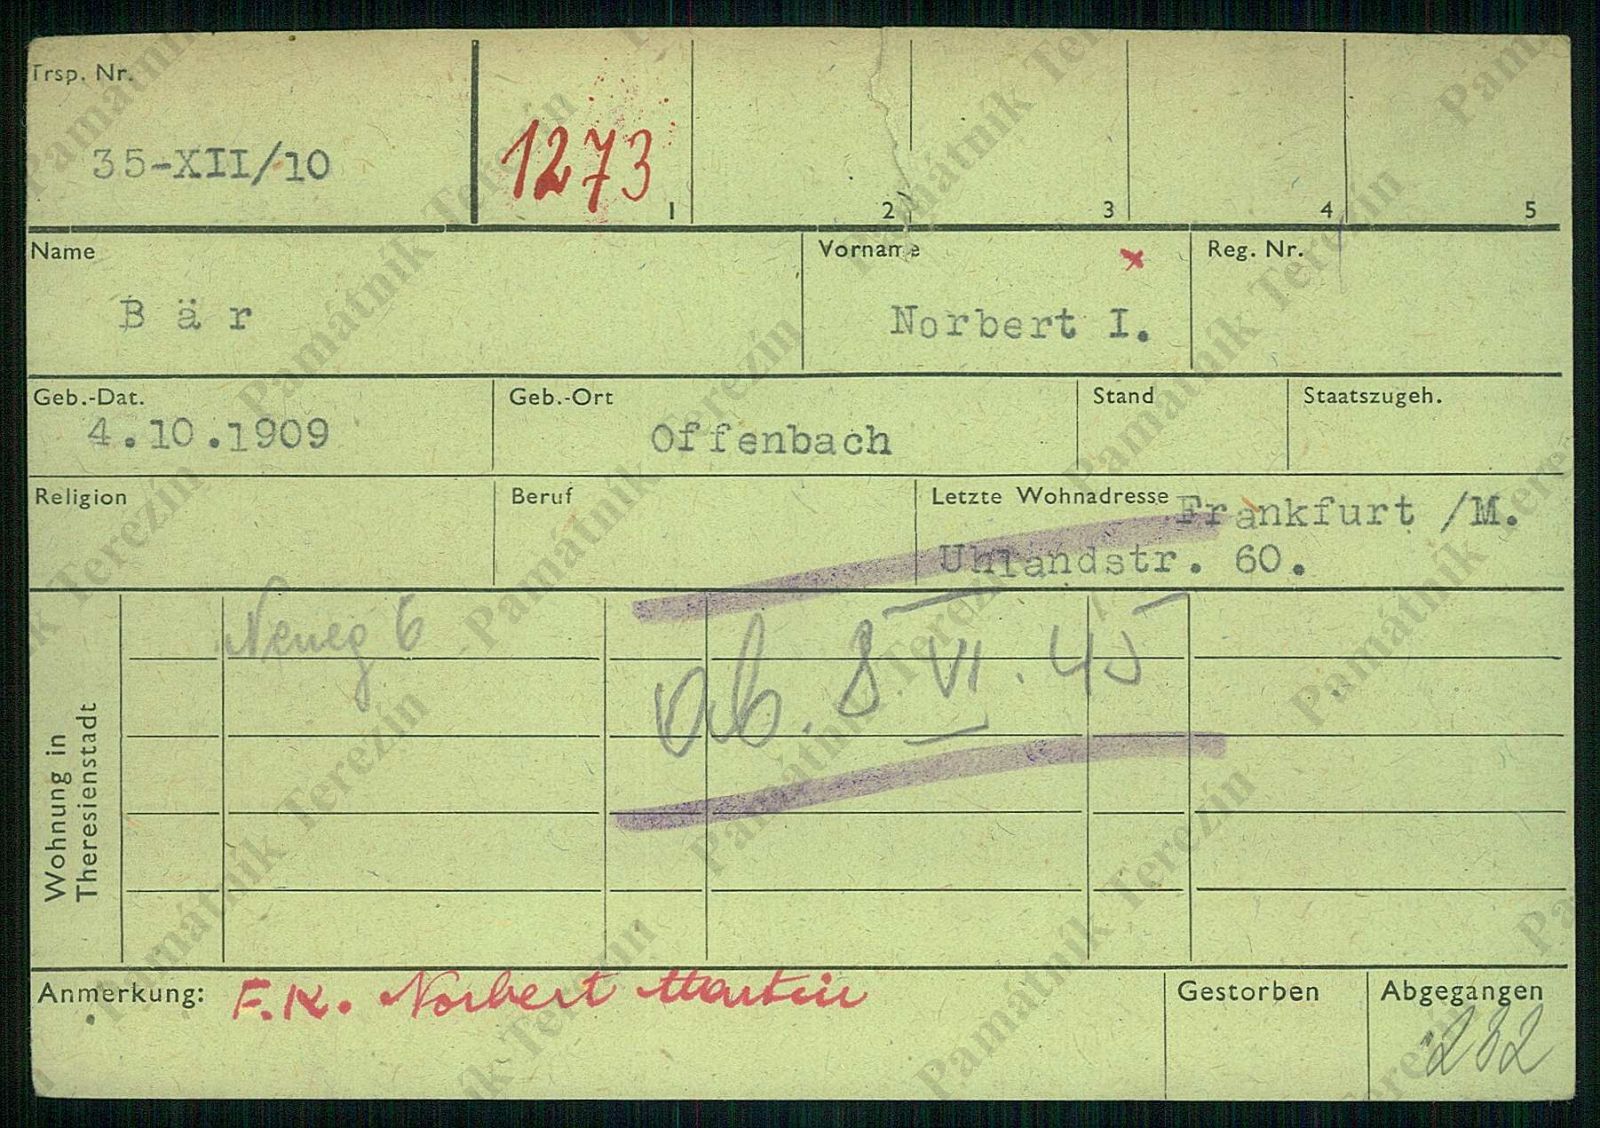 Trsp. Nr.
35-XII/10
1273
1
2
3
4
5
Name
Bär
Vorname
x
Norbert I.
Reg. Nr.
Geb.-Dat.
4.10.1909
Geb.-Ort
Offenbach
Stand
Staatszugeh.
Religion
Beruf
Letzte Wohnadresse Frankfurt /M.
Uhlandstr. 60.
Wohnung in
Theresienstadt
6
ab. 8 VI. 45
Anmerkung: F.K. Norbert Martin
Gestorben
Abgegangen
282
Památník Terezín